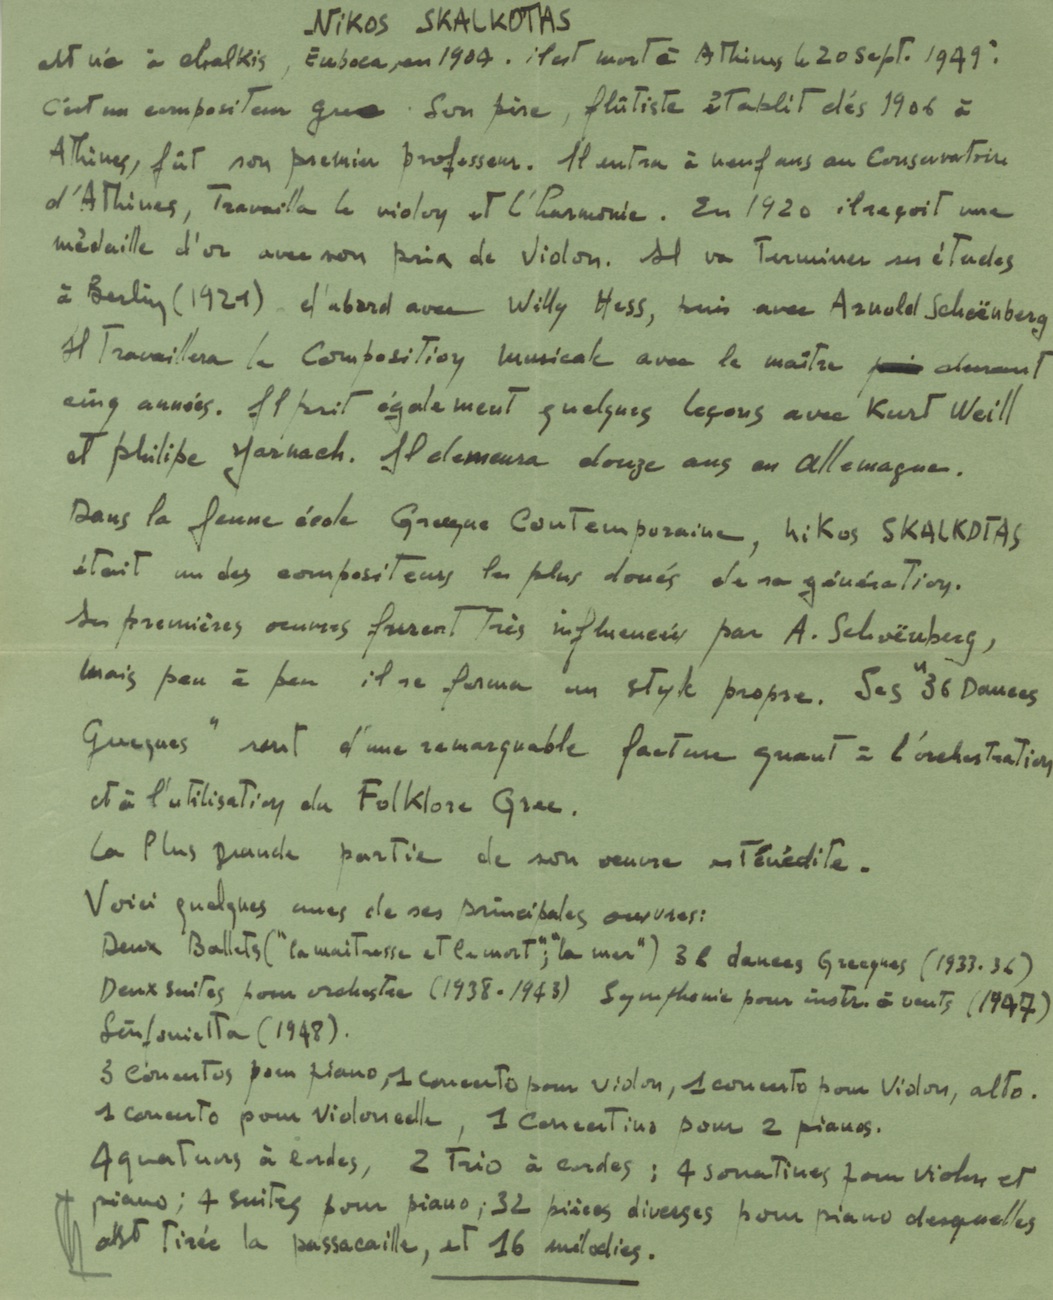 NiKOS SKALKOTAS
est né à chalkis, Euboea, en 1904. il est mort à Athines le 20 sept. 1949.
C'est un compositeur grec. Son père, flûtiste établit dés 1906 à
Athines, fût son premier professeur. Il entra à neuf ans au Conservatoire
d'Athines, Travailla le violon et l'harmonie. En 1920 il reçoit une
médaille d'or avec son prix de Violon. Il va Terminer ses études
à Berlin (1921) d'abord avec Willy Hess, puis avec Arnold Schoënberg
Il Travaillera la Composition musicale avec le maître durant
cinq années. Il prit également quelques leçons avec Kurt Weill
et philipe Jarnach. Il demeura douze ans en Allemagne.
Dans la Jeune école Grecque Contemporaine, NiKos SKALKOTAS
était un des compositeurs les plus doués de sa génération.
Ses premières oeuvres furent Très influencées par A. Schoënberg,
mais peu à peu il se forma un style propre. Ses "36 Dances
Grecques" sont d'une remarquable facture quant à l'orchestration
et à l'utilisation du Folklore Grec.
La Plus grande partie de son oeuvre est inédite.
Voici quelques unes de ses principales oeuvres:
Deux Ballets ("la maitresse et la mort"; "la mer") 36 dances Grecques (1933-36)
Deux suites pour orchestre (1938-1943) Symphonie pour instr. à vents (1947)
Sinfonietta (1948).
3 Concertos pour piano, 1 concerto pour violon, 1 concerto pour Violon, alto.
1 concerto pour Violoncelle, 1 Concertino pour 2 pianos.
4 quatuors à cordes, 2 Trio à cordes; 4 sonatines pour violon et
piano; 4 suites pour piano; 32 pièces diverses pour piano desquelles
est Tirée la passacaille, et 16 mélodies.